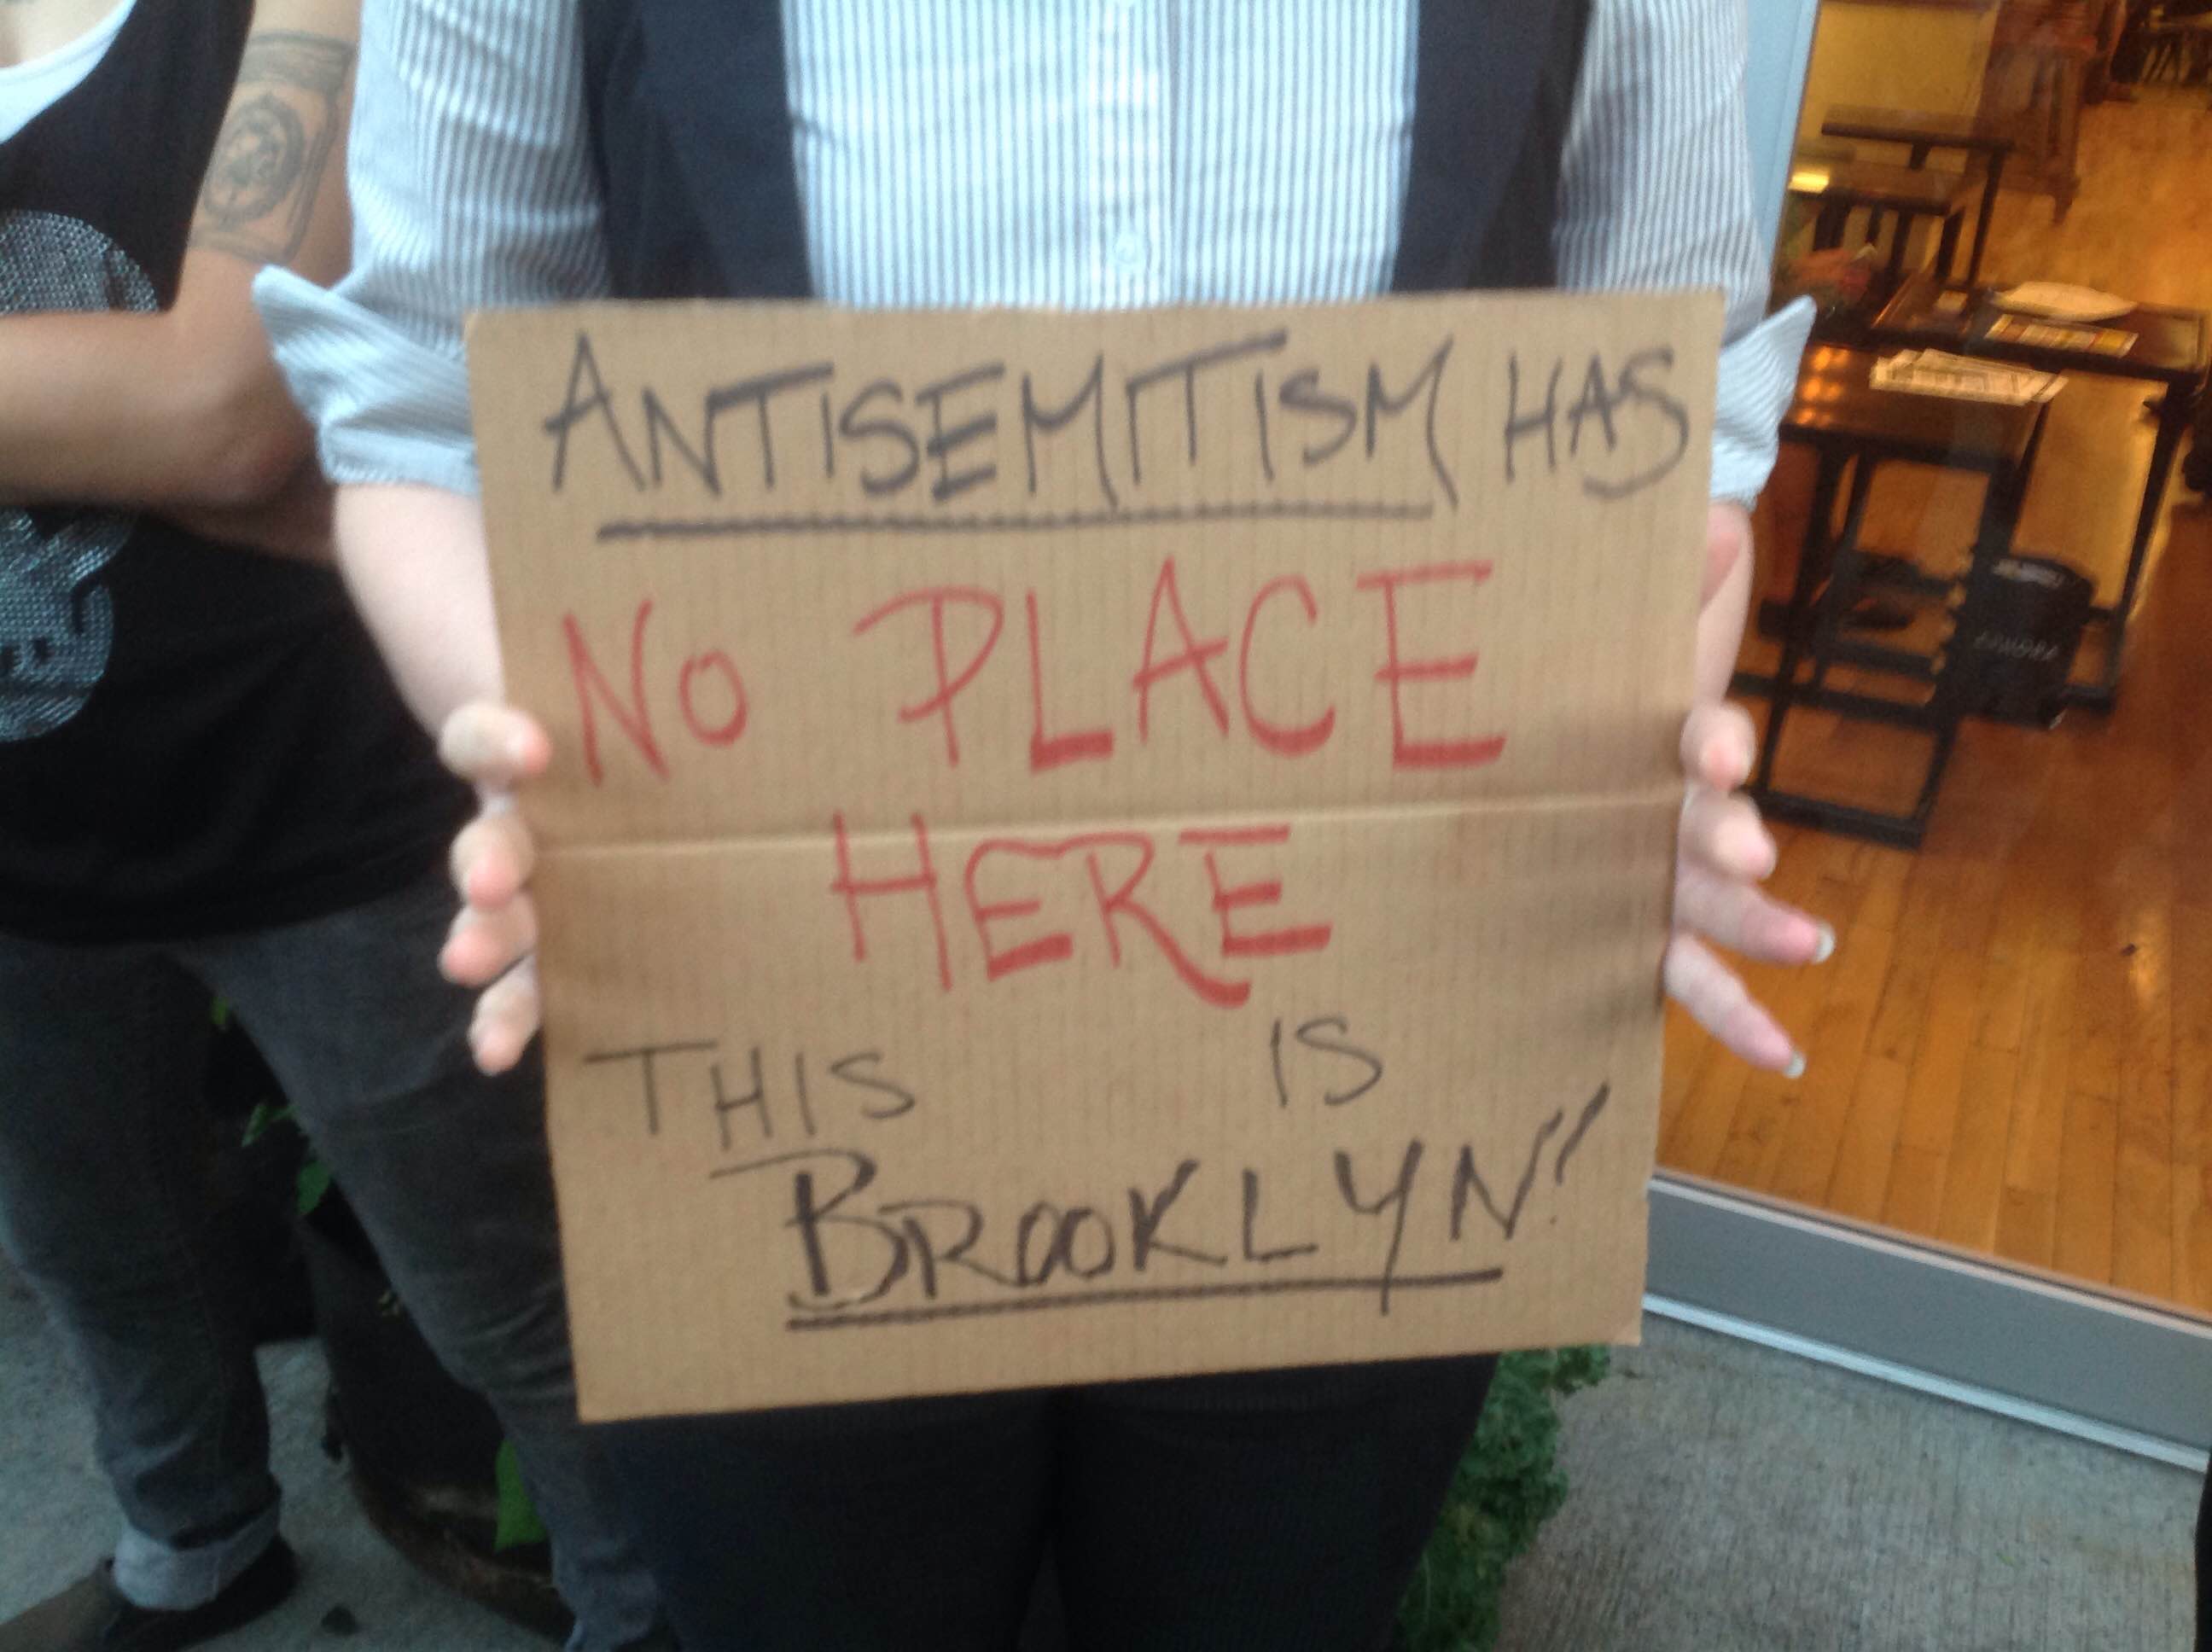 ANTISEMITISM HAS
NO PLACE
HERE
THIS IS
BROOKLYN!!